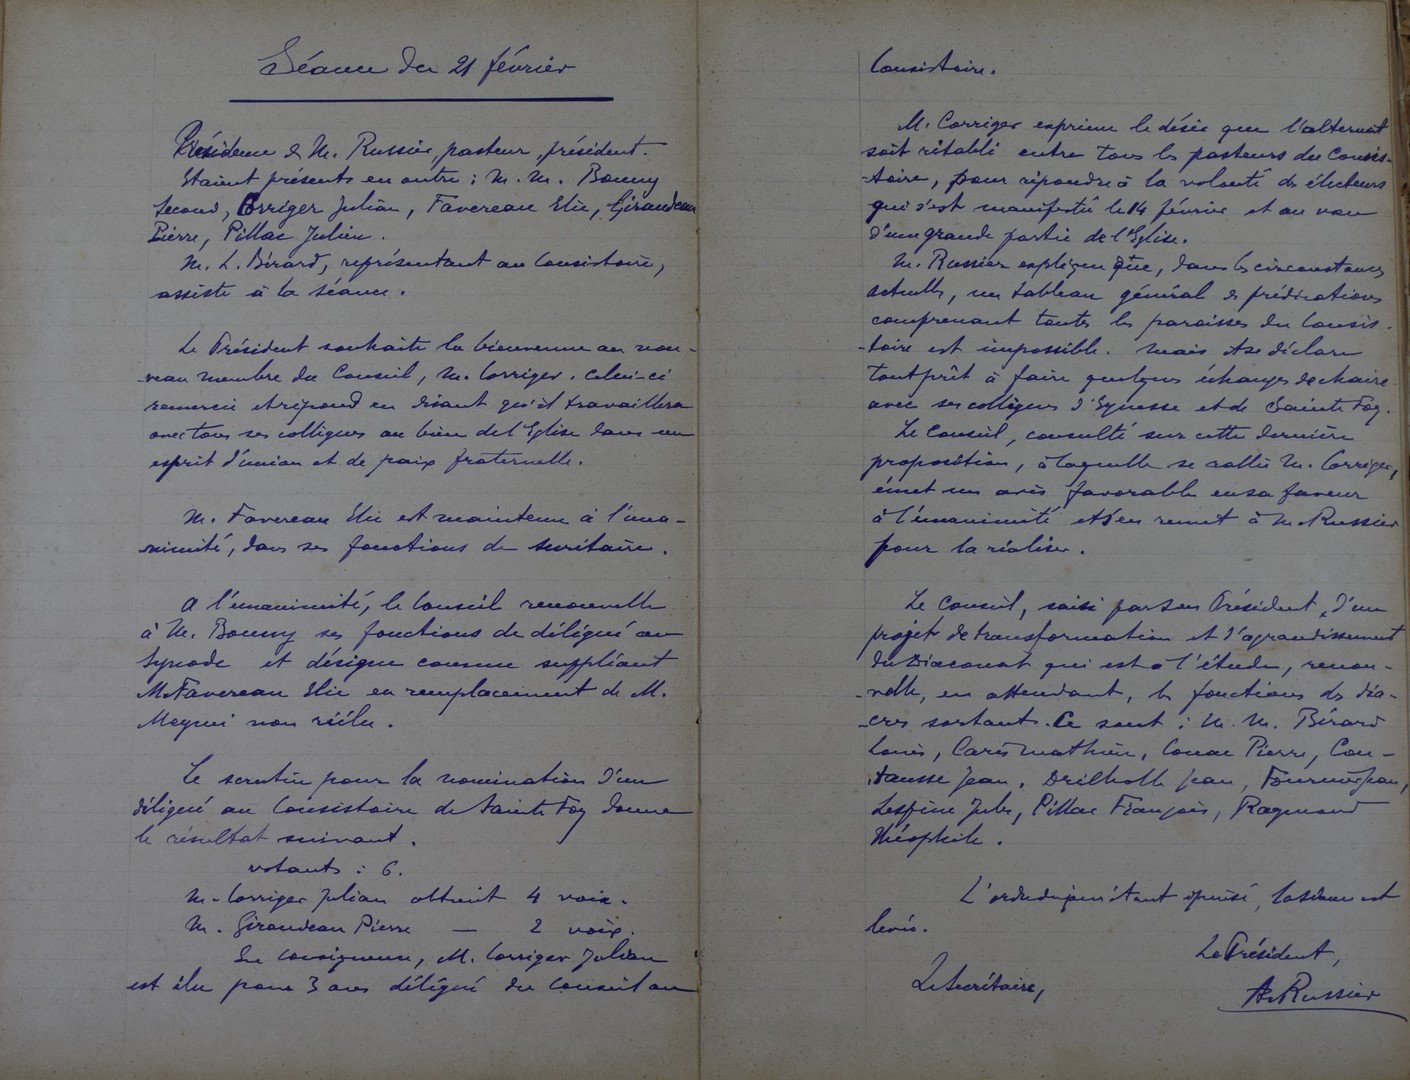 Séance du 21 février
Présidence de M. Russier, pasteur, président.
Etaient présents en outre : M. M. Boumy
Second, Corriger Julian, Favereau Elie, Giraudeau
Pierre, Pillac Julien.
M. L. Bérard, représentant au Consistoire,
assiste à la séance.
Le Président souhaite la bienvenue au nou-
-veau membre du Conseil, M. Corriger. Celui-ci
remercie et répond en disant qu'il travaillera
avec tous ses collègues au bien de l'Eglise dans un
esprit d'union et de paix fraternelle.
M. Favereau Elie est maintenu à l'una-
nimité, dans ses fonctions de secrétaire.
A l'unanimité, le Conseil renouvelle
à M. Boumy ses fonctions de délégué au
Synode et désigne comme suppléant
M. Favereau Elie en remplacement de M.
non réélu.
Le scrutin pour la nomination d'un
délégué au Consistoire de Sainte Foy donne
le résultat suivant.
votants : 6.
M. Corriger Julian obtient 4 voix.
M. Giraudeau Pierre — 2 voix.
En conséquence, M. Corriger Julian
est élu pour 3 ans délégué du Conseil au
Consistoire.
M. Corriger exprime le désir que l'alternat
soit rétabli entre tous les pasteurs du Consis-
-toire, pour répondre à la volonté des électeurs
qui s'est manifestée le 14 février et au vœu
d'une grande partie de l'Eglise.
M. Russier explique que, dans les circonstances
actuelles, un tableau général de prédications
comprenant toutes les paroisses du Consis-
-toire est impossible. Mais il se déclare
tout prêt à faire quelques échanges de chaire
avec ses collègues d'Eynesse et de Sainte Foy.
Le Conseil, consulté sur cette dernière
proposition, à laquelle se rallie M. Corriger,
émet un avis favorable en sa faveur
à l'unanimité et s'en remet à M. Russier
pour la réaliser.
Le Conseil, saisi par son Président, d'un
projet de transformation et d'agrandissement
du Diaconat qui est à l'étude, renou-
-velle, en attendant, les fonctions des dia-
-cres sortants. Ce sont : M. M. Bérard
Louis, Carés Mathieu, Conac Pierre, Cou-
-tausse Jean, Drilholle Jean, Fournié Jean,
Lespine Jules, Pillac François, Raymond
Théophile.
L'ordre du jour étant épuisé, la séance est
levée.
Le Président,
Le Secrétaire,
A. Russier